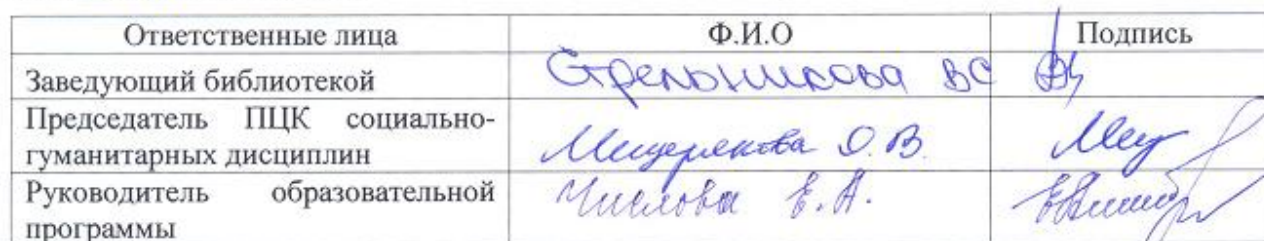 Ответственные лица Ф.И.О Подпись
Заведующий библиотекой Стрельникова ВС
Председатель ПЦК социально-
гуманитарных дисциплин Мещерякова О.В.
Руководитель образовательной Числова Е.А.
программы